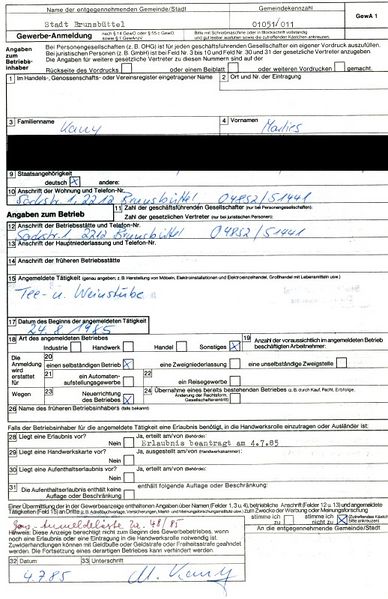 Name der entgegennehmenden Gemeinde/Stadt Gemeindekennzahl GewA 1
Stadt Brunsbüttel 01051/011
Gewerbe-Anmeldung nach § 14 GewO oder § 55 c GewO Bitte mit Schreibmaschine oder in Blockschrift vollständig und gut lesbar ausfüllen sowie die zutreffenden Kästchen ankreuzen
Angaben zum Betriebsinhaber Bei Personengesellschaften (z. B. OHG) ist für jeden geschäftsführenden Gesellschafter ein eigener Vordruck auszufüllen.
Bei juristischen Personen (z. B. GmbH) ist bei Feld Nr. 3 bis 10 und Feld Nr. 30 und 31 der gesetzliche Vertreter anzugeben.
Die Angaben für weitere gesetzliche Vertreter zu diesen Nummern sind auf der
Rückseite des Vordrucks oder einem Beiblatt oder weiteren Vordrucken gemacht.
1 Im Handels-, Genossenschafts- oder Vereinsregister eingetragener Name 2 Ort und Nr. der Eintragung
3 Familienname 4 Vornamen
Marlies
9 Staatsangehörigkeit
deutsch X andere:
10 Anschrift der Wohnung und Telefon-Nr.
1, 2212 Brunsbüttel 04852/51441
Angaben zum Betrieb 11 Zahl der geschäftsführenden Gesellschafter (nur bei Personengesellschaften)
Zahl der gesetzlichen Vertreter (nur bei juristischen Personen):
12 Anschrift der Betriebsstätte und Telefon-Nr.
1 2212 Brunsbüttel 04852/51441
13 Anschrift der Hauptniederlassung und Telefon-Nr.
14 Anschrift der früheren Betriebsstätte
15 Angemeldete Tätigkeit (genau angeben; z. B. Herstellung von Möbeln, Elektroinstallationen und Elektroeinzelhandel, Großhandel mit Lebensmitteln usw.)
Tee- u. Weinstube
17 Datum des Beginns der angemeldeten Tätigkeit
24.8.1985
18 Art des angemeldeten Betriebes 19 Anzahl der voraussichtlich im angemeldeten Betrieb beschäftigten Arbeitnehmer:
Industrie Handwerk Handel Sonstiges X
Die Anmeldung wird erstattet für 20 einen selbständigen Betrieb X eine Zweigniederlassung eine unselbständige Zweigstelle
21 ein Automatenaufstellungsgewerbe 22 ein Reisegewerbe
Wegen 23 Neuerrichtung des Betriebes X 24 Übernahme eines bereits bestehenden Betriebes (z. B. durch Kauf, Pacht, Erbfolge, Änderung der Rechtsform, Gesellschaftereintritt)
26 Name des früheren Betriebsinhabers (falls bekannt)
Falls der Betriebsinhaber für die angemeldete Tätigkeit eine Erlaubnis benötigt, in die Handwerksrolle einzutragen oder Ausländer ist:
28 Liegt eine Erlaubnis vor? Nein Ja, erteilt am/von (Behörde):
Erlaubnis beantragt am 4.7.85
29 Liegt eine Handwerkskarte vor? Nein Ja, ausgestellt am/von (Handwerkskammer):
30 Liegt eine Aufenthaltserlaubnis vor? Nein Ja, erteilt am/von (Behörde):
31 Die Aufenthaltserlaubnis enthält keine Auflage oder Beschränkung enthält folgende Auflage oder Beschränkung:
Einer Übermittlung der in der Gewerbeanzeige enthaltenen Angaben über Namen (Felder 1, 3 u. 4), betriebliche Anschrift (Felder 12 u. 13) und angemeldete
stimme ich zu stimme ich nicht zu X Zutreffendes Kästchen bitte ankreuzen
An die entgegennehmende Gemeinde/Stadt
48/85
Hinweis: Diese Anzeige berechtigt nicht zum Beginn des Gewerbebetriebes, wenn
noch eine Erlaubnis oder eine Eintragung in die Handwerksrolle notwendig ist.
Zuwiderhandlungen können mit Geldbuße oder Geldstrafe oder Freiheitsstrafe geahndet
werden. Die Fortsetzung eines derartigen Betriebes kann verhindert werden.
32 Datum 33 Unterschrift
4.7.85